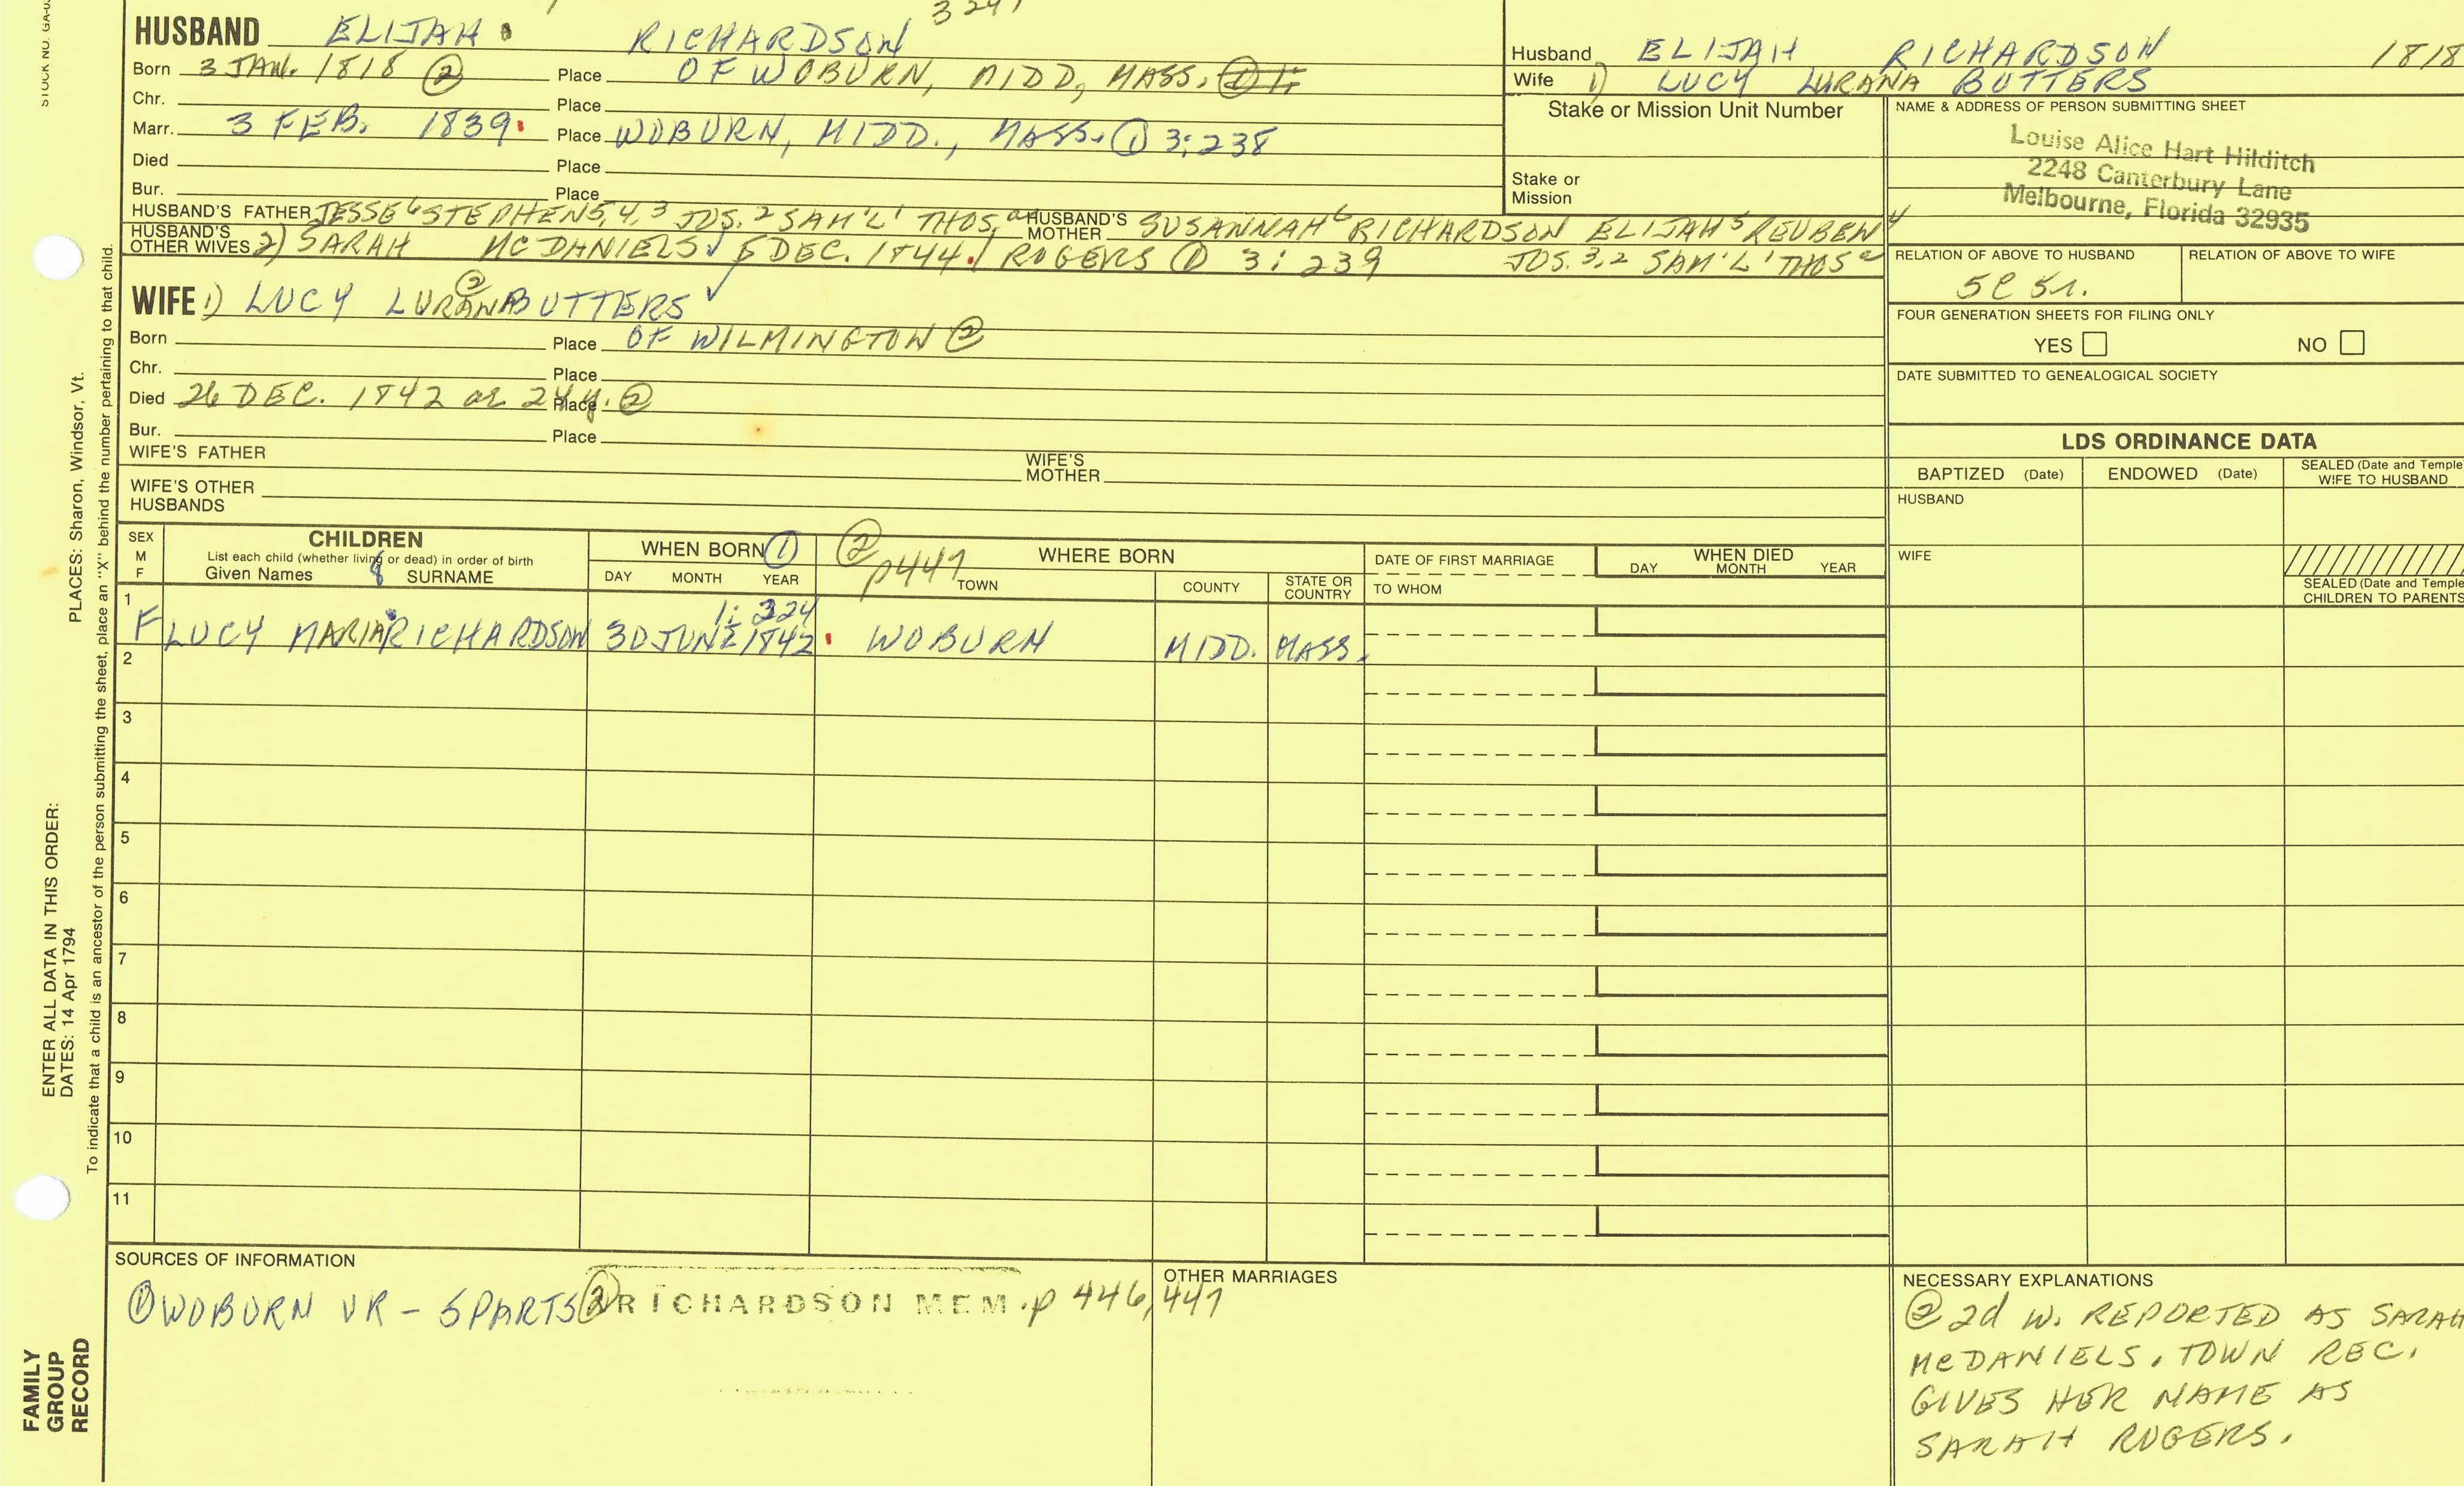 STOCK NO. GA-0
3241
HUSBAND ELIJAH RICHARDSON
Born 3 JAN. 1818 ② Place OF WOBURN, MIDD, MASS. ① 1:
Chr. Place
Marr. 3 FEB. 1839 Place WOBURN, MIDD., MASS. ① 3:238
Died Place
Bur. Place
HUSBAND'S FATHER JESSE 6 STEPHEN 5,4,3 JOS. 2 SAM'L 1 THOS. a HUSBAND'S MOTHER SUSANNAH 6 RICHARDSON ELIJAH 5 REUBEN 4
HUSBAND'S OTHER WIVES 2) SARAH MCDANIELS ✓ 5 DEC. 1844 / ROGERS ① 3:239 JOS. 3,2 SAM'L 1 THOS a
WIFE 1) LUCY LURANA ② BUTTERS ✓
Born Place OF WILMINGTON ②
Chr. Place
Died 26 DEC. 1842 ae 24 y. ② Place
Bur. Place
WIFE'S FATHER WIFE'S MOTHER
WIFE'S OTHER HUSBANDS
Husband ELIJAH RICHARDSON 1818
Wife 1) LUCY LURANA BUTTERS
Stake or Mission Unit Number
Stake or Mission
NAME & ADDRESS OF PERSON SUBMITTING SHEET
Louise Alice Hart Hilditch
2248 Canterbury Lane
Melbourne, Florida 32935
RELATION OF ABOVE TO HUSBAND RELATION OF ABOVE TO WIFE
5C 5r.
FOUR GENERATION SHEETS FOR FILING ONLY
YES NO
DATE SUBMITTED TO GENEALOGICAL SOCIETY
LDS ORDINANCE DATA
BAPTIZED (Date) ENDOWED (Date) SEALED (Date and Temple
WIFE TO HUSBAND
HUSBAND
WIFE
SEALED (Date and Temple
CHILDREN TO PARENTS
SEX M F
CHILDREN
List each child (whether living or dead) in order of birth
Given Names 8 SURNAME
WHEN BORN ①
DAY MONTH YEAR
② p447
WHERE BORN
TOWN COUNTY STATE OR COUNTRY
DATE OF FIRST MARRIAGE
TO WHOM
WHEN DIED
DAY MONTH YEAR
1:324
1 F LUCY MARIA RICHARDSON 30 JUNE 1842 WOBURN MIDD. MASS.
2
3
4
5
6
7
8
9
10
11
SOURCES OF INFORMATION
① WOBURN VR - 5 PARTS ② RICHARDSON MEM. p 446, 447
OTHER MARRIAGES
NECESSARY EXPLANATIONS
② 2d W. REPORTED AS SARAH
McDANIELS. TOWN REC.
GIVES HER NAME AS
SARAH ROGERS.
PLACES: Sharon, Windsor, Vt.
ENTER ALL DATA IN THIS ORDER:
DATES: 14 Apr 1794
To indicate that a child is an ancestor of the person submitting the sheet, place an "X" behind the number pertaining to that child.
FAMILY
GROUP
RECORD